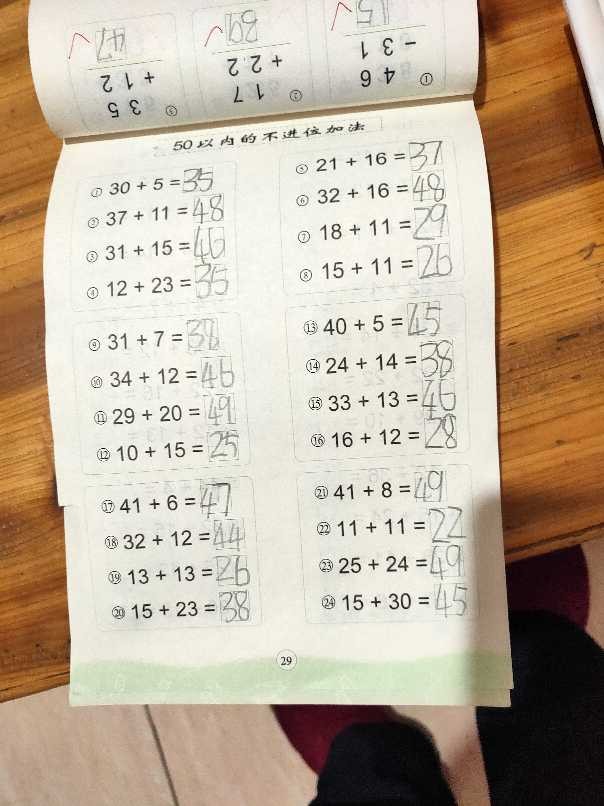 ① 46 - 31 15
② 17 + 22 39
③ 35 + 12 47
50以内的不进位加法
① 30 + 5 = 35
② 37 + 11 = 48
③ 31 + 15 = 46
④ 12 + 23 = 35
⑤ 21 + 16 = 37
⑥ 32 + 16 = 48
⑦ 18 + 11 = 29
⑧ 15 + 11 = 26
⑨ 31 + 7 = 38
⑩ 34 + 12 = 46
⑪ 29 + 20 = 49
⑫ 10 + 15 = 25
⑬ 40 + 5 = 45
⑭ 24 + 14 = 38
⑮ 33 + 13 = 46
⑯ 16 + 12 = 28
⑰ 41 + 6 = 47
⑱ 32 + 12 = 44
⑲ 13 + 13 = 26
⑳ 15 + 23 = 38
㉑ 41 + 8 = 49
㉒ 11 + 11 = 22
㉓ 25 + 24 = 49
㉔ 15 + 30 = 45
29